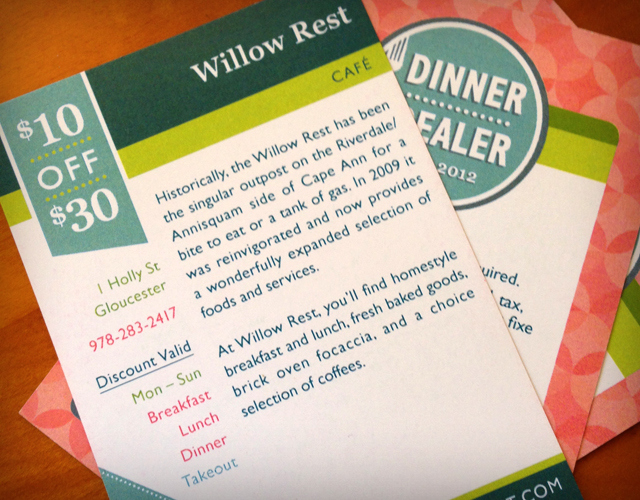 Willow Rest
CAFÉ
$10
OFF
$30
1 Holly St
Gloucester
978-283-2417
Discount Valid
Mon – Sun
Breakfast
Lunch
Dinner
Takeout
Historically, the Willow Rest has been
the singular outpost on the Riverdale/
Annisquam side of Cape Ann for a
bite to eat or a tank of gas. In 2009 it
was reinvigorated and now provides
a wonderfully expanded selection of
foods and services.
At Willow Rest, you'll find homestyle
breakfast and lunch, fresh baked goods,
brick oven focaccia, and a choice
selection of coffees.
DINNER
EALER
2012
uired.
tax,
fixe
T.COM